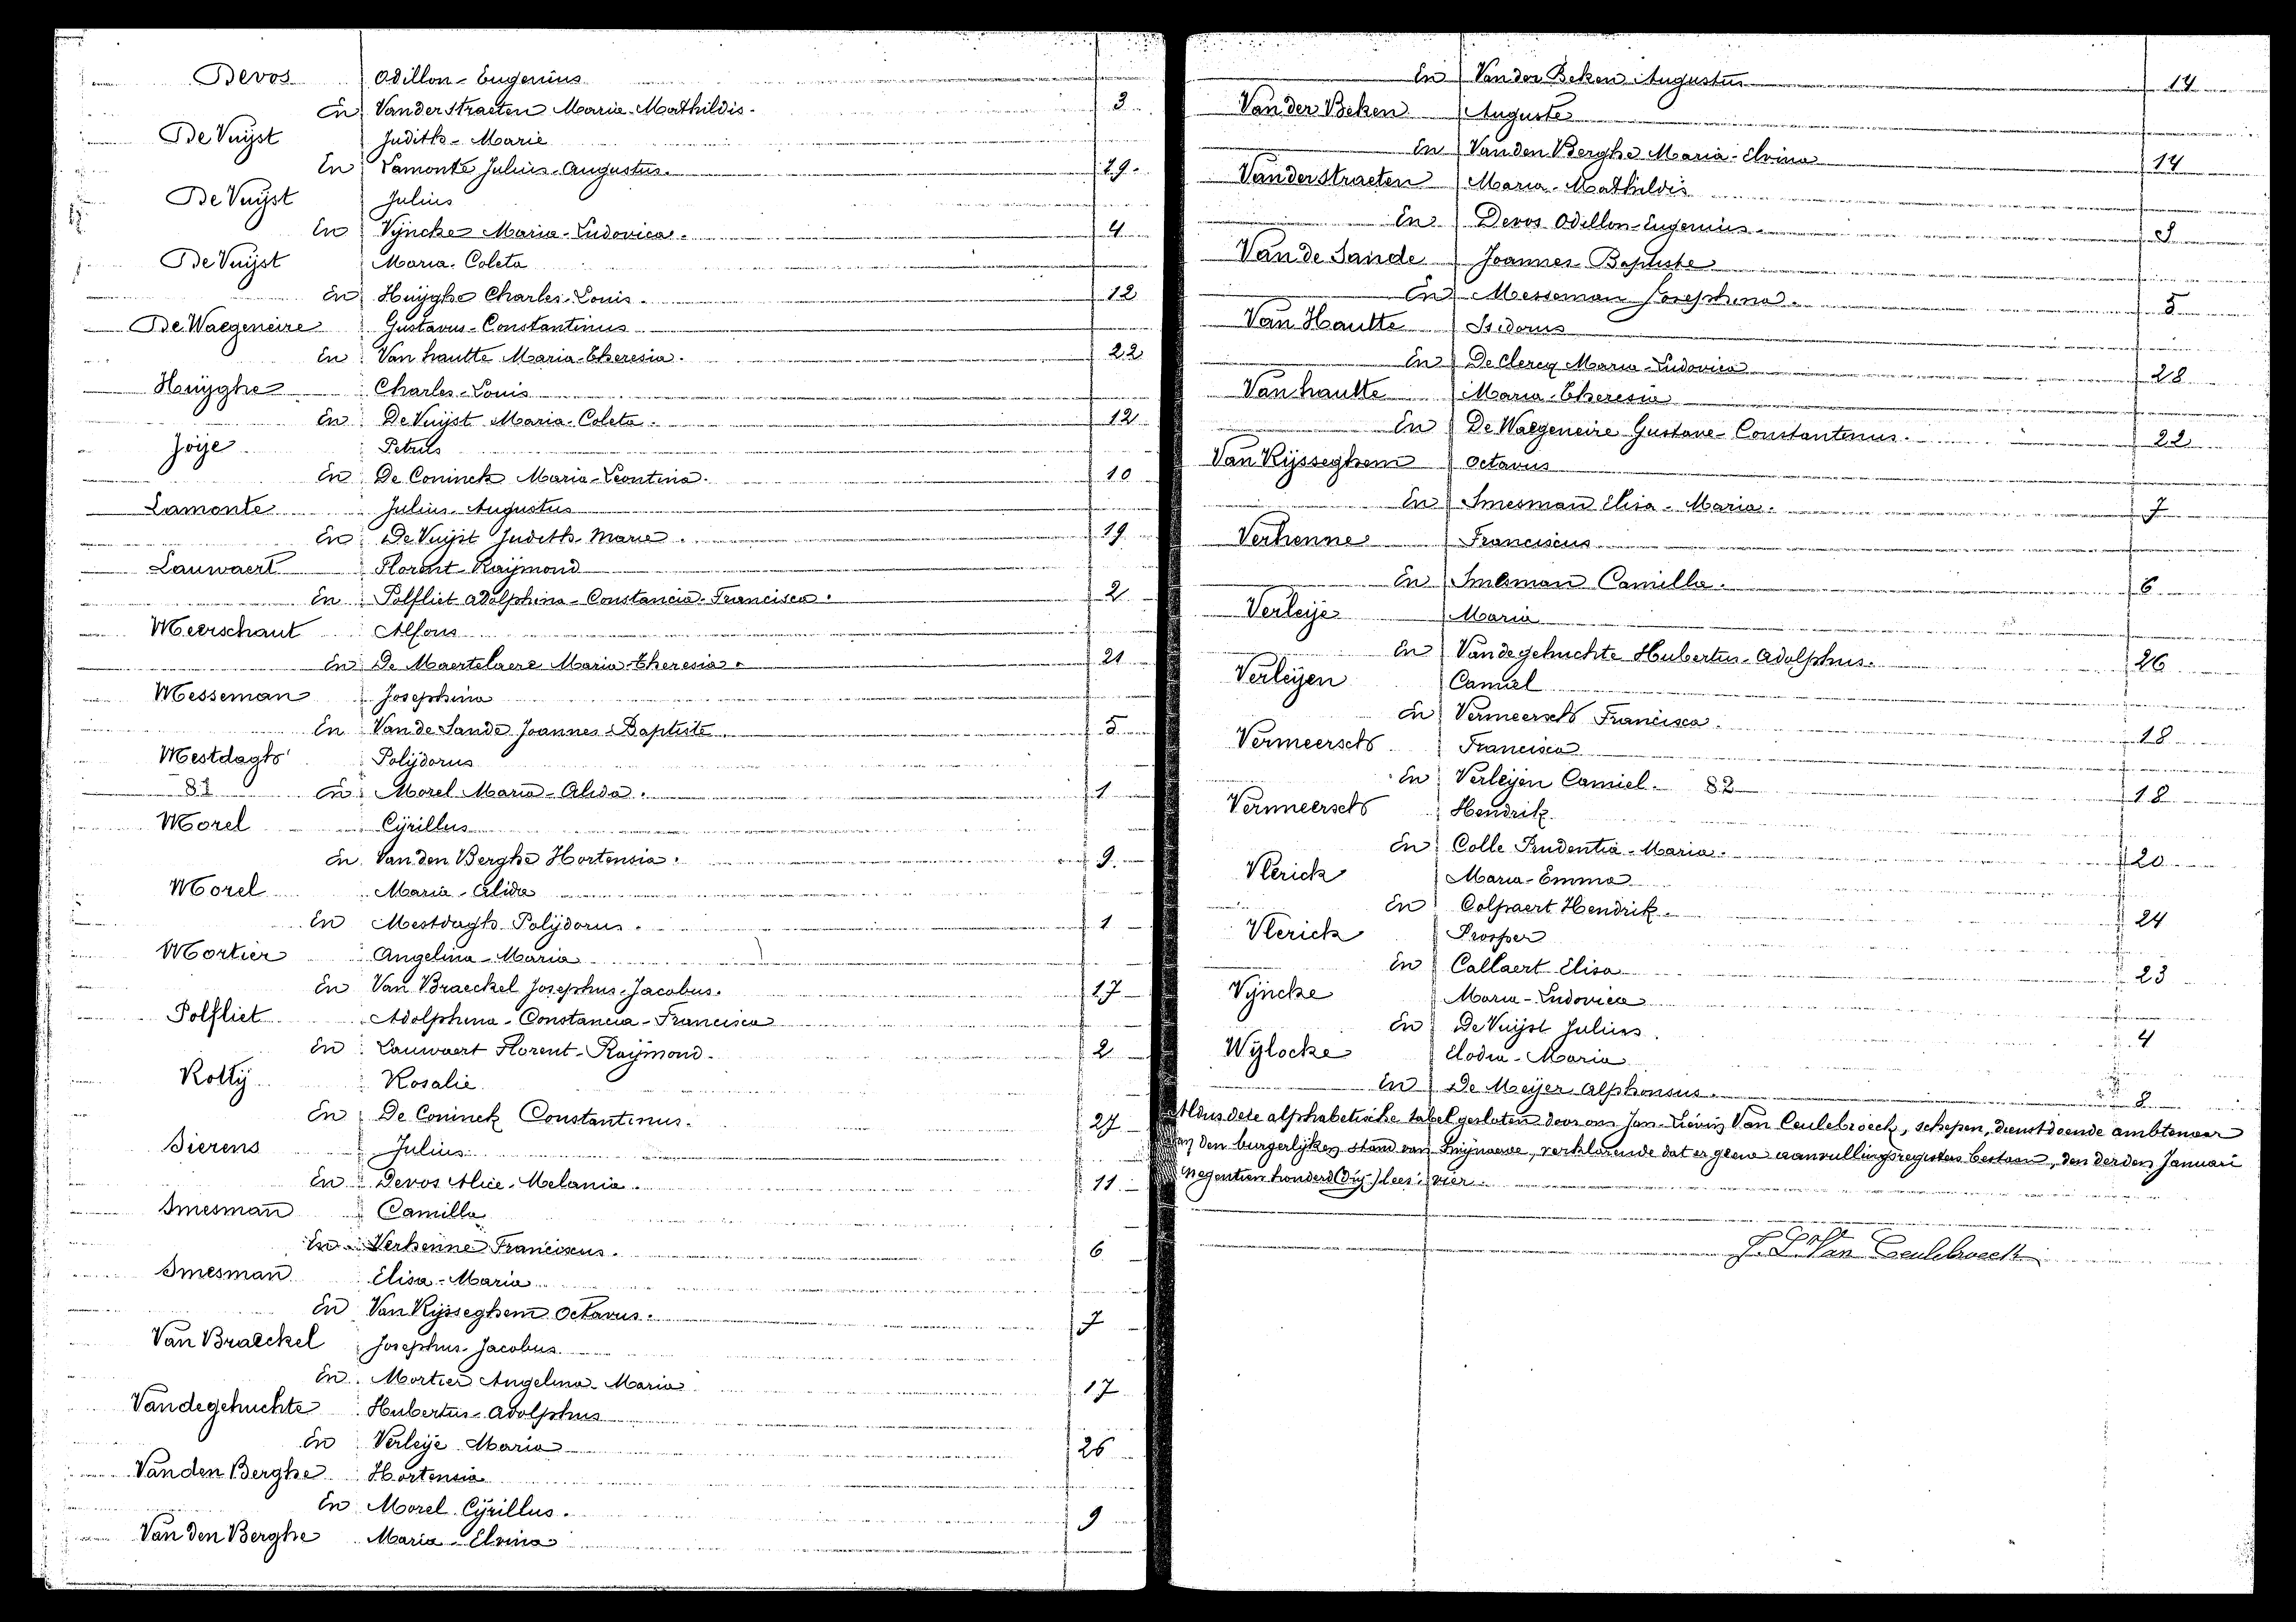 Devos Odillon-Eugenius
En Vanderstraeten Maria-Mathildis. 3
De Vuijst Judith-Marie
En Lamonte Julius-Augustus. 19.
De Vuijst Julius
En Vijncke Maria-Ludovica. 4
De Vuijst Maria-Coleta
En Huijghe Charles-Louis. 12
De Waegeneire Gustavus-Constantinus
En Van hautte Maria-Theresia. 22
Huijghe Charles-Louis
En De Vuijst Maria-Coleta. 12
Joije Petrus
En De Coninck Maria-Leontina. 10
Lamonte Julius-Augustus
En De Vuijst Judith-Marie. 19
Lauwaert Florent-Raijmond
En Polfliet Adolphina-Constancia-Francisca. 2
Meerschaut Alfons
En De Maertelaere Maria-Theresia. 21
Messeman Josephina
En Van de Sande Joannes-Baptiste. 5
Mestdagh Polijdorus
81 En Morel Maria-Alida. 1
Morel Cijrillus
En Van den Berghe Hortensia. 9.
Morel Maria-Alida
En Mestdagh Polijdorus. 1
Mortier Angelina-Maria
En Van Braeckel Josephus-Jacobus. 17
Polfliet Adolphina-Constancia-Francisca
En Lauwaert Florent-Raijmond. 2
Rottij Rosalie
En De Coninck Constantinus. 27
Sierens Julius
En Devos Alice-Melania. 11
Smesman Camilla
En Verhenne Franciscus. 6
Smesman Elisa-Maria
En Van Rijsseghem Octavus. 7
Van Braeckel Josephus-Jacobus
En Mortier Angelina-Maria 17
Vandegehuchte Hubertus-Adolphus
En Verleije Maria 26
Vanden Berghe Hortensia
En Morel Cijrillus. 9
Van den Berghe Maria-Elvina
En Van der Beken Augustus 14
Van der Beken Auguste
En Van den Berghe Maria-Elvina 14
Vanderstraeten Maria-Mathildis
En Devos Odillon-Eugenius. 3
Van de Sande Joannes-Baptiste
En Messeman Josephina. 5
Van Hautte Isidorus
En De Clercq Maria-Ludovica 28
Van hautte Maria-Theresia
En De Waegeneire Gustave-Constantinus. 22
Van Rijsseghem Octavus
En Smesman Elisa-Maria. 7
Verhenne Franciscus
En Smesman Camilla. 6
Verleije Maria
En Vandegehuchte Hubertus-Adolphus. 26
Verleijen Camiel
En Vermeersch Francisca. 18
Vermeersch Francisca
En Verleijen Camiel. 82 18
Vermeersch Hendrik
En Colle Prudentia-Maria. 20
Vlerick Maria-Emma
En Colpaert Hendrik. 24
Vlerick Prosper
En Callaert Elisa 23
Vijncke Maria-Ludovica
En De Vuijst Julius. 4
Wijlocke Elodia-Maria
En De Meijer Alphonsus. 8
Aldus deze alphabetische tabel gesloten door ons Jan-Lievin Van Ceulebroeck, schepen, dienstdoende ambtenaar
van den burgerlijken stand van Zwijnaarde, verklarende dat er geene aanvullingsregisters bestaan, den derden Januari
negentien honderd (drij) lees: vier.
J. L. Van Ceulebroeck